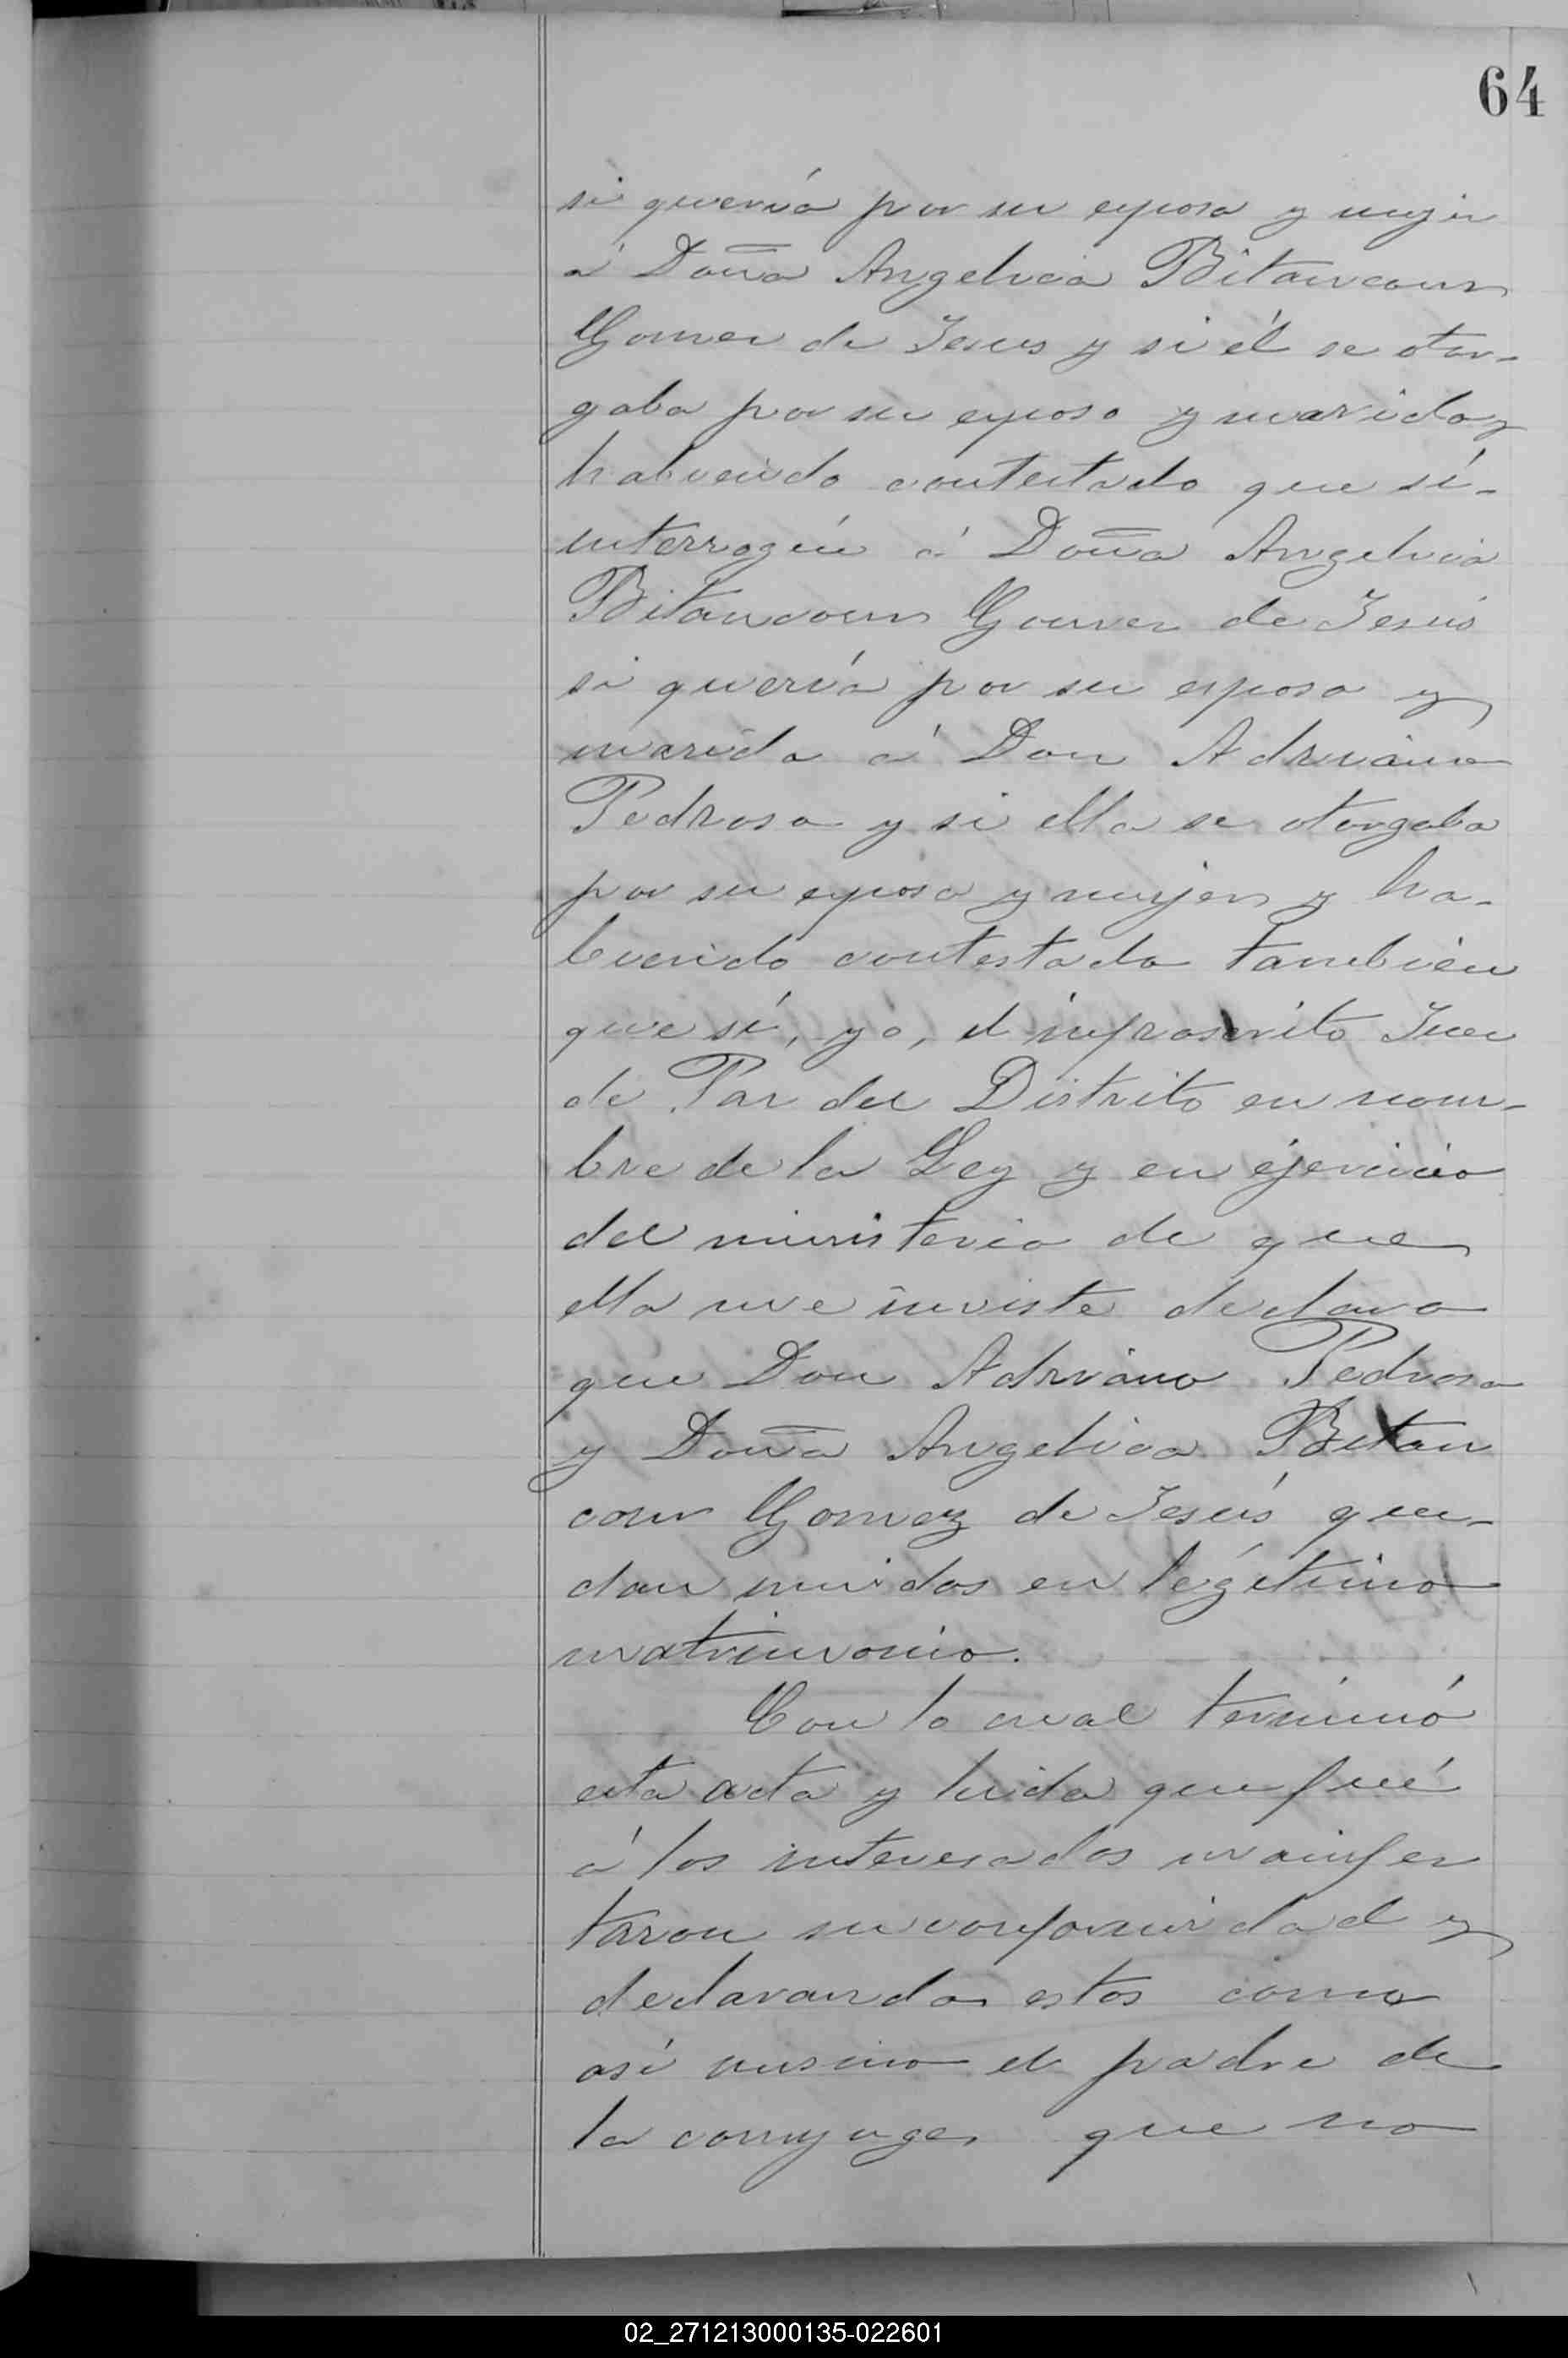 64
si quería por su esposa y mujer
á Doña Angelica Bitancour
Gomez de Jesus y si él se otor-
gaba por su esposo y marido y
habiendo contestado que sí-
interrogué á Doña Angelica
Bitancour Gomez de Jesús
si quería por su esposo y
marido á Don Adriano
Pedrosa y si ella se otorgaba
por su esposa y mujer y ha-
biendo contestado también
que sí, yo, el infrascrito Juez
de Paz del Distrito en nom-
bre de la Ley y en ejercicio
del ministerio de que
ella me inviste declaro
que Don Adriano Pedrosa
y Doña Angelica Bitan
cour Gomez de Jesús que-
dan unidos en legítimo
matrimonio.
Con lo cual terminó
esta acta y leida que fué
á los interesados manifes
taron su conformidad y
declarando estos como
asi mismo el padre de
la conyuge que no
02_271213000135-022601